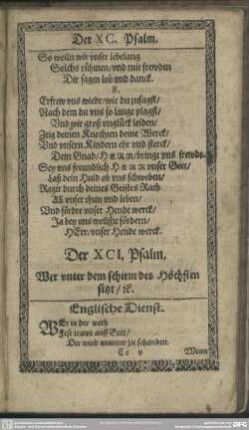 Der XC. Psalm.
So wolln wir vnser lebelang
Solchs rühmen/vnd mit frewden
Dir sagen lob vnd danck.
8.
Erfrew vns wieder/wie du zusagst/
Nach dem du vns so lange plagst/
Vnd wir groß vnglück leiden/
Zeig deinen Knechten deine Werck/
Vnd vnsern Kindern ehr vnd sterck/
Dein Gnad/HERR/bring vns frewde.
Sey vns freundlich HERR vnser Gott/
Laß dein Huld ob vns schweben/
Regir durch deines Geistes Rath
All vnser thun vnd leben/
Vnd fördre vnser Hende werck/
Ja bey vns wollstu fördern/
HErr/vnser Hende werck.
Der XCI, Psalm,
Wer vnter dem schirm des Höchsten
sitzt/ꝛc.
Englische Dienst.
WEr in der noth
Fest trawt auff Gott/
Der wird nimmer zu schanden.
Cc v
Wenn